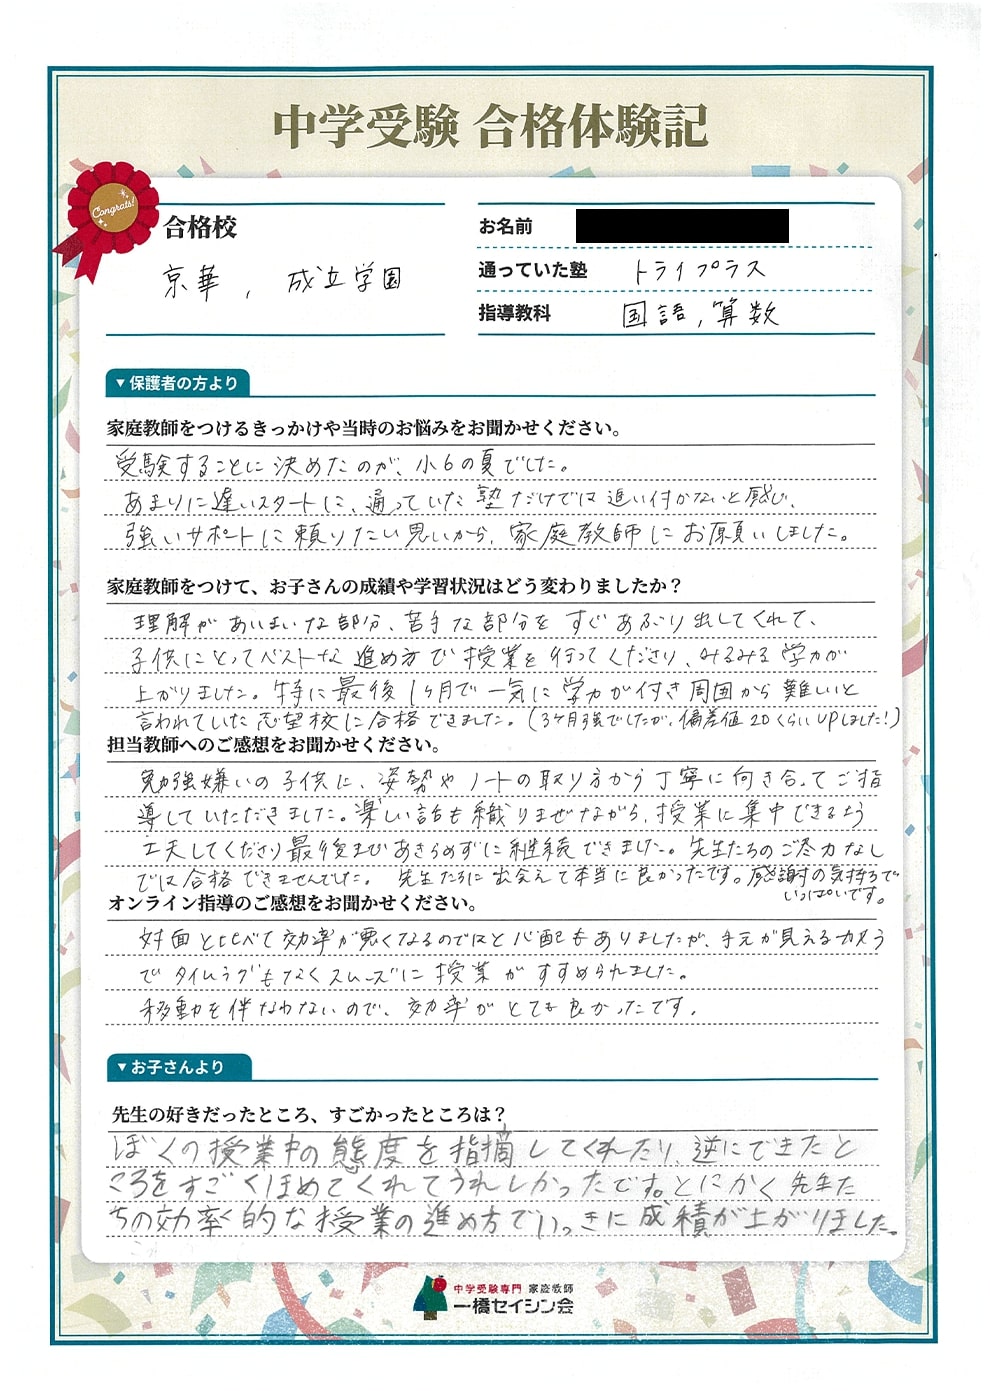 中学受験 合格体験記
Congrats!
合格校
京華, 成立学園
お名前
通っていた塾 トライプラス
指導教科 国語, 算数
▼保護者の方より
家庭教師をつけるきっかけや当時のお悩みをお聞かせください。
受験することに決めたのが、小6の夏でした。
あまりに遅いスタートに、通っていた塾だけでは追い付かないと感じ、
強いサポートに頼りたい思いから、家庭教師にお願いしました。
家庭教師をつけて、お子さんの成績や学習状況はどう変わりましたか？
理解があいまいな部分、苦手な部分をすぐあぶり出してくれて、
子供にとってベストな進め方で授業を行ってくださり、みるみる学力が
上がりました。特に最後1ヶ月で一気に学力が付き周囲から難しいと
言われていた志望校に合格できました。(3ヶ月強でしたが、偏差値20くらいUPしました!)
担当教師へのご感想をお聞かせください。
勉強嫌いの子供に、姿勢やノートの取り方から丁寧に向き合ってご指
導していただきました。楽しい話も織りまぜながら、授業に集中できるよう
工夫してくださり最後まであきらめずに継続できました。先生たちのご尽力なし
では合格できませんでした。 先生たちに出会えて本当に良かったです。感謝の気持ちで
いっぱいです。
オンライン指導のご感想をお聞かせください。
対面と比べて効率が悪くなるのではと心配もありましたが、手元が見えるカメラ
でタイムラグもなくスムーズに授業がすすめられました。
移動を伴なわないので、効率がとても良かったです。
▼お子さんより
先生の好きだったところ、すごかったところは？
ぼくの授業中の態度を指摘してくれたり、逆にできたと
ころをすごくほめてくれてうれしかったです。とにかく先生た
ちの効率的な授業の進め方でいっきに成績が上がりました。
中学受験専門 家庭教師
一橋セイシン会